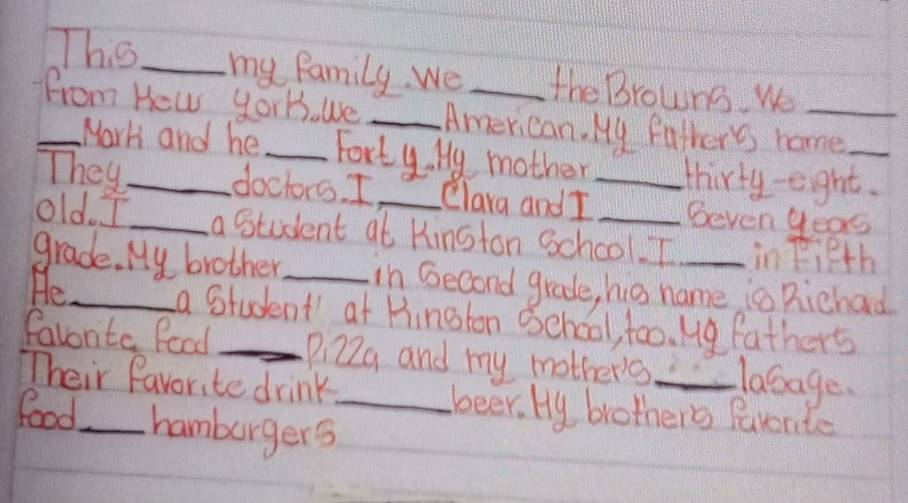 This____my family. We____the Browns. We____
from How York. We____American. My father's name__
__Mark and he____Forty. My mother____thirty-eight.
They____doctors. I____Clara and I____Seven years
old. I____a Student at Kinston School. I____in Fifth
grade. My brother____in Second grade, his name is Richad
He____a Student at Kinston School, too. My father's
favorite food____Pizza and my mother's____lasage.
Their favorite drink____beer. My brother's favorite
food____hamburgers